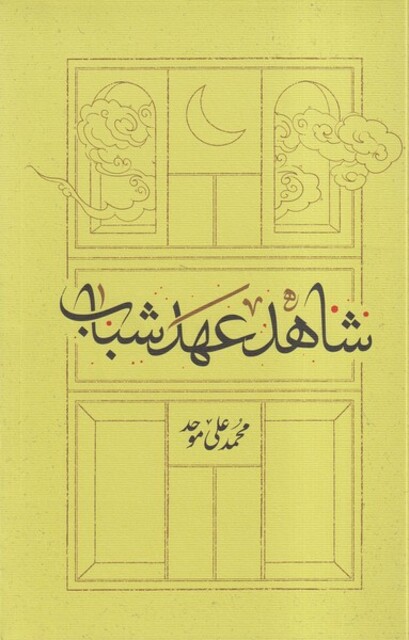 شاهد عهد شباب
محمدعلی موحد